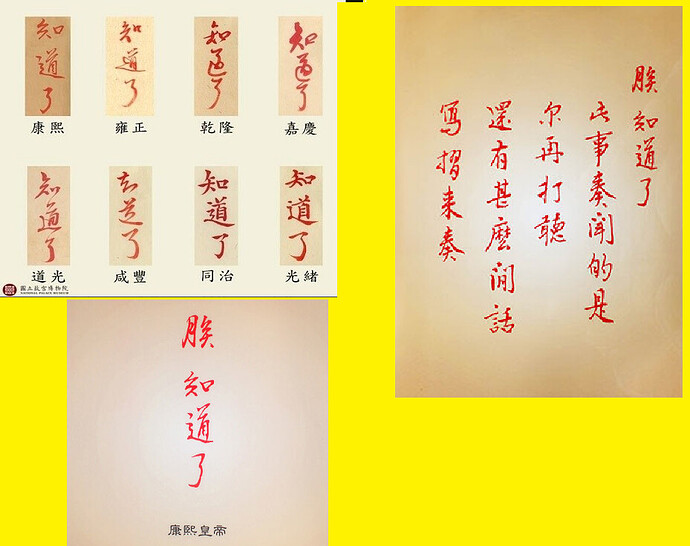 知道了
康熙
知道了
雍正
知道了
乾隆
知道了
嘉慶
知道了
道光
知道了
咸豐
知道了
同治
知道了
光緒
國立故宮博物院
NATIONAL PALACE MUSEUM
朕知道了
此事奏闻的是
尔再打聽
還有甚麽閒話
寫摺来奏
朕知道了
康熙皇帝